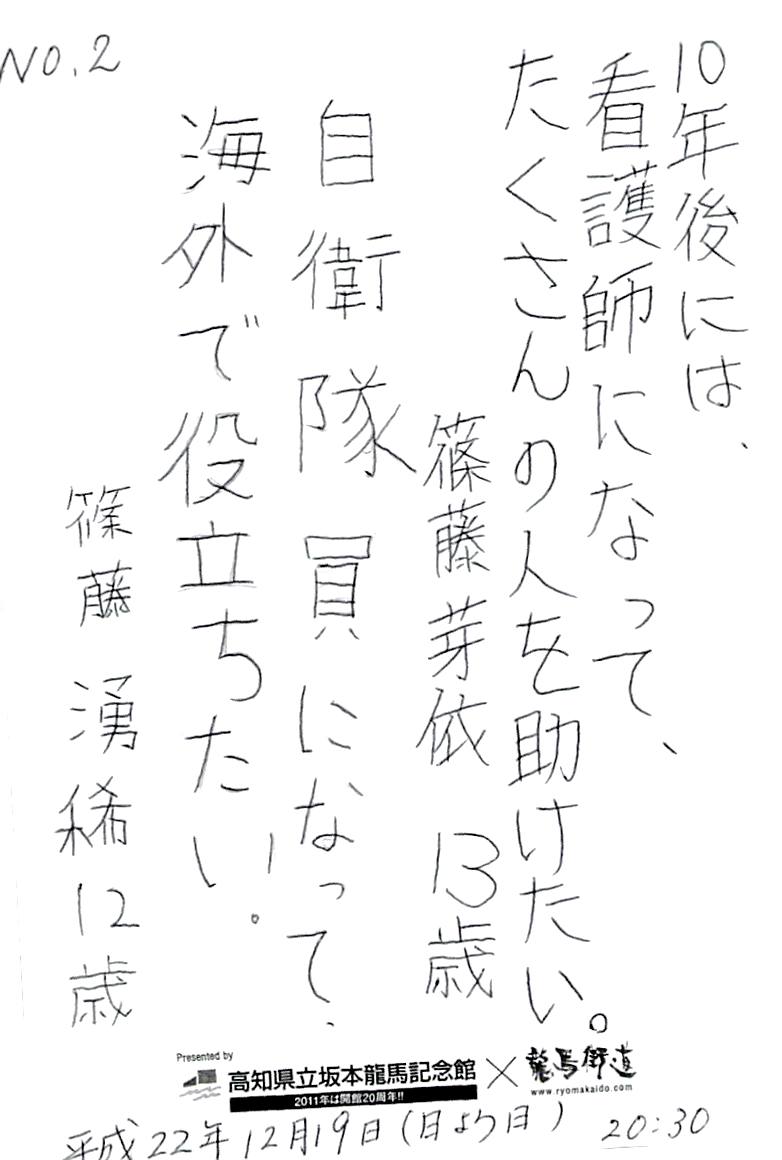 NO.2
10年後には、
看護師になって、
たくさんの人を助けたい。
篠藤芽依 13歳
自衛隊員になって、
海外で役立ちたい。
篠藤湧稀12歳
Presented by
高知県立坂本龍馬記念館
2011年は開館20周年!!
×
龍馬街道
www.ryomakaido.com
平成22年12月19日(日よう日) 20:30